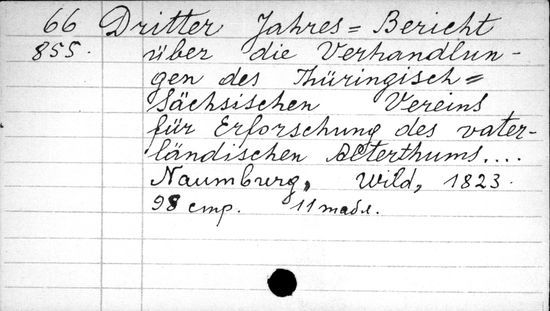 66 Dritter Jahres=Bericht
855. über die Verhandlun-
gen des Thüringisch=
Sächsischen Vereins
für Erforschung des vater-
ländischen Alterthums....
Naumburg, Wild, 1823.
98 стр. 11 табл.